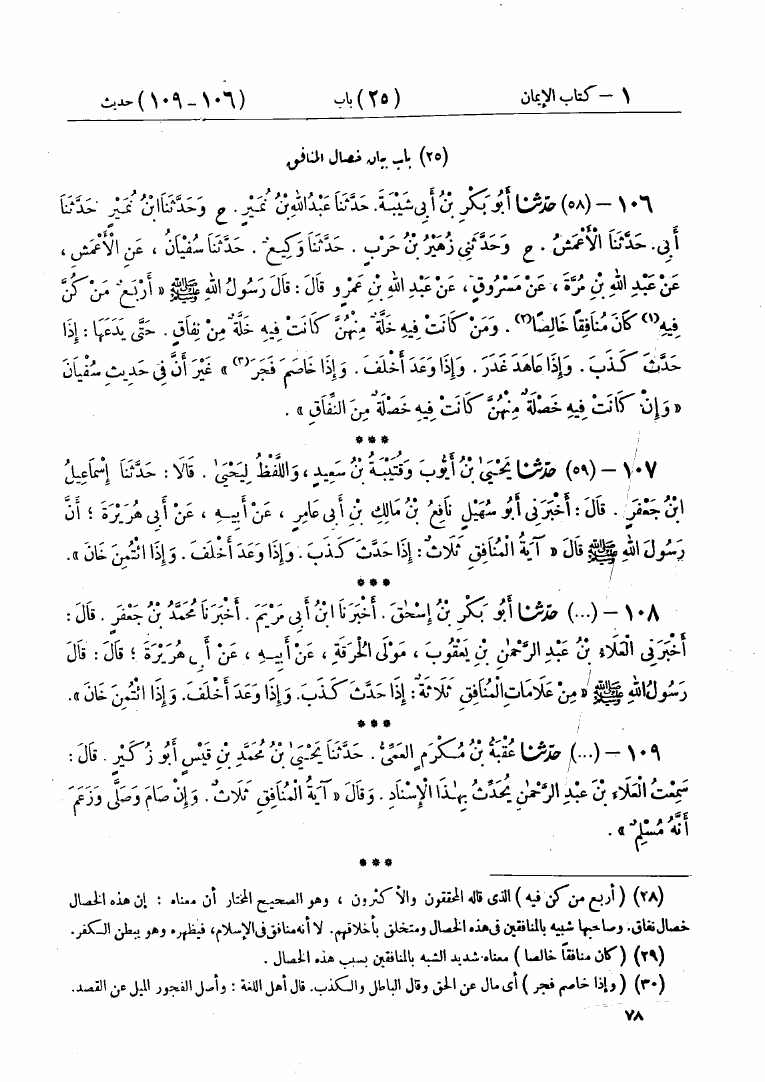 ١ – كتاب الإيمان (٢٥) باب (١٠٦ - ١٠٩) حديث
(٢٥) باب بيان خصال المنافق
١٠٦ – (٥٨) حَدَّثَنَا أَبُو بَكْرِ بْنُ أَبِي شَيْبَةَ. حَدَّثَنَا عَبْدُ اللهِ بْنُ نُمَيْرٍ. ح وَحَدَّثَنَا ابْنُ نُمَيْرٍ حَدَّثَنَا
أَبِي. حَدَّثَنَا الْأَعْمَشُ. ح وَحَدَّثَنِي زُهَيْرُ بْنُ حَرْبٍ. حَدَّثَنَا وَكِيعٌ. حَدَّثَنَا سُفْيَانُ، عَنِ الْأَعْمَشِ،
عَنْ عَبْدِ اللهِ بْنِ مُرَّةَ، عَنْ مَسْرُوقٍ، عَنْ عَبْدِ اللهِ بْنِ عَمْرٍو قَالَ: قَالَ رَسُولُ اللهِ ﷺ « أَرْبَعٌ مَنْ كُنَّ
فِيهِ(١) كَانَ مُنَافِقًا خَالِصًا(٢). وَمَنْ كَانَتْ فِيهِ خَلَّةٌ مِنْهُنَّ كَانَتْ فِيهِ خَلَّةٌ مِنْ نِفَاقٍ. حَتَّى يَدَعَهَا: إِذَا
حَدَّثَ كَذَبَ. وَإِذَا عَاهَدَ غَدَرَ. وَإِذَا وَعَدَ أَخْلَفَ. وَإِذَا خَاصَمَ فَجَرَ(٣) » غَيْرَ أَنَّ فِي حَدِيثِ سُفْيَانَ
« وَإِنْ كَانَتْ فِيهِ خَصْلَةٌ مِنْهُنَّ كَانَتْ فِيهِ خَصْلَةٌ مِنَ النِّفَاقِ ».
***
١٠٧ – (٥٩) حَدَّثَنَا يَحْيَىٰ بْنُ أَيُّوبَ وَقُتَيْبَةُ بْنُ سَعِيدٍ، وَاللَّفْظُ لِيَحْيَىٰ. قَالَا: حَدَّثَنَا إِسْمَاعِيلُ
ابْنُ جَعْفَرٍ. قَالَ: أَخْبَرَنِي أَبُو سُهَيْلٍ نَافِعُ بْنُ مَالِكِ بْنِ أَبِي عَامِرٍ، عَنْ أَبِيهِ، عَنْ أَبِي هُرَيْرَةَ؛ أَنَّ
رَسُولَ اللهِ ﷺ قَالَ « آيَةُ الْمُنَافِقِ ثَلَاثٌ: إِذَا حَدَّثَ كَذَبَ. وَإِذَا وَعَدَ أَخْلَفَ. وَإِذَا ائْتُمِنَ خَانَ ».
***
١٠٨ – (...) حَدَّثَنَا أَبُو بَكْرِ بْنُ إِسْحَٰقَ. أَخْبَرَنَا ابْنُ أَبِي مَرْيَمَ. أَخْبَرَنَا مُحَمَّدُ بْنُ جَعْفَرٍ. قَالَ:
أَخْبَرَنِي الْعَلَاءُ بْنُ عَبْدِ الرَّحْمَٰنِ بْنِ يَعْقُوبَ، مَوْلَى الْحُرَقَةِ، عَنْ أَبِيهِ، عَنْ أَبِي هُرَيْرَةَ؛ قَالَ: قَالَ
رَسُولُ اللهِ ﷺ « مِنْ عَلَامَاتِ الْمُنَافِقِ ثَلَاثَةٌ: إِذَا حَدَّثَ كَذَبَ. وَإِذَا وَعَدَ أَخْلَفَ. وَإِذَا ائْتُمِنَ خَانَ ».
***
١٠٩ – (...) حَدَّثَنَا عُقْبَةُ بْنُ مُكْرَمٍ الْعَمِّيُّ. حَدَّثَنَا يَحْيَىٰ بْنُ مُحَمَّدِ بْنِ قَيْسٍ أَبُو زُكَيْرٍ. قَالَ:
سَمِعْتُ الْعَلَاءَ بْنَ عَبْدِ الرَّحْمَٰنِ يُحَدِّثُ بِهَٰذَا الْإِسْنَادِ. وَقَالَ « آيَةُ الْمُنَافِقِ ثَلَاثٌ. وَإِنْ صَامَ وَصَلَّى وَزَعَمَ
أَنَّهُ مُسْلِمٌ ».
***
(٢٨) ( أربع من كن فيه ) الذى قاله المحققون والأكثرون ، وهو الصحيح المختار أن معناه : إن هذه الخصال
خصال نفاق. وصاحبها شبيه بالمنافقين فى هذه الخصال ومتخلق بأخلاقهم. لا أنه منافق فى الإسلام، فيظهره وهو يبطن الكفر.
(٢٩) ( كان منافقاً خالصا ) معناه شديد الشبه بالمنافقين بسبب هذه الخصال .
(٣٠) ( وإذا خاصم فجر ) أى مال عن الحق وقال الباطل والكذب. قال أهل اللغة : وأصل الفجور الميل عن القصد.
٧٨